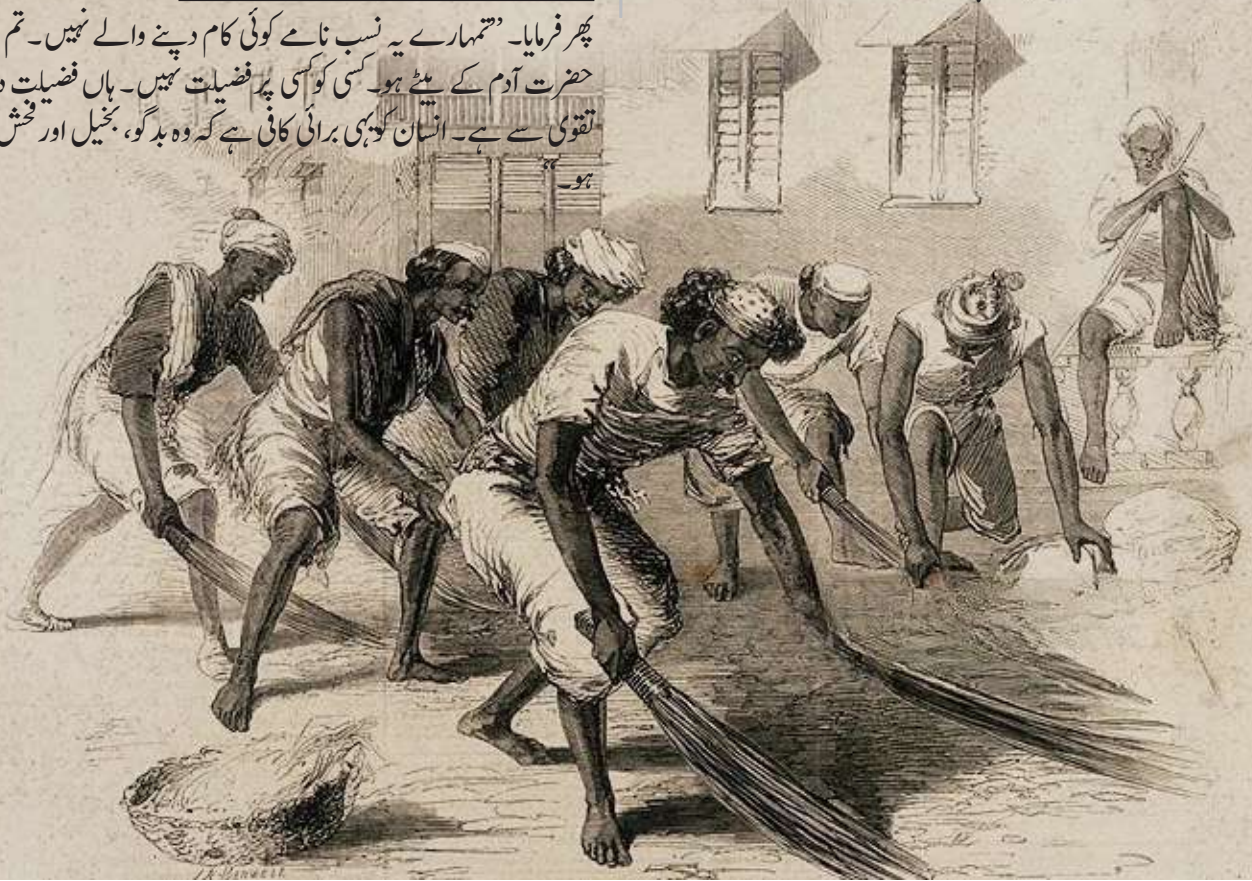 پھر فرمایا۔ ”تمہارے یہ نسب نامے کوئی کام دینے والے نہیں۔ تم
حضرت آدم کے بیٹے ہو۔ کسی کو کسی پر فضیلت نہیں۔ ہاں فضیلت
تقویٰ سے ہے۔ انسان کو یہی برائی کافی ہے کہ وہ بد گو، بخیل اور فحش
ہو۔“